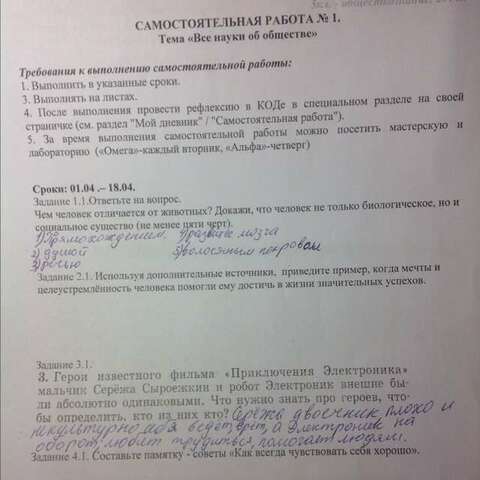 САМОСТОЯТЕЛЬНАЯ РАБОТА № 1.
Тема «Все науки об обществе»
Требования к выполнению самостоятельной работы:
1. Выполнить в указанные сроки.
3. Выполнять на листах.
4. После выполнения провести рефлексию в КОДе в специальном разделе на своей
страничке (см. раздел "Мой дневник" / "Самостоятельная работа").
5. За время выполнения самостоятельной работы можно посетить мастерскую и
лабораторию («Омега»-каждый вторник, «Альфа»-четверг)
Сроки: 01.04 .– 18.04.
Задание 1.1.Ответьте на вопрос.
Чем человек отличается от животных? Докажи, что человек не только биологическое, но и
социальное существо (не менее пяти черт).
1) Прямохождением. 4) развитие мозга
2) душой 5) волосяным покровом
3) речью
Задание 2.1. Используя дополнительные источники, приведите пример, когда мечты и
целеустремлённость человека помогли ему достичь в жизни значительных успехов.
Задание 3.1.
3. Герои известного фильма «Приключения Электроника»
мальчик Серёжа Сыроежкин и робот Электроник внешне бы-
ли абсолютно одинаковыми. Что нужно знать про героев, что-
бы определить, кто из них кто? Серёжа двоечник плохо и
некультурно себя ведёт, а Электроник на
оборот любит трудиться, помогает людям.
Задание 4.1. Составьте памятку - советы «Как всегда чувствовать себя хорошо».